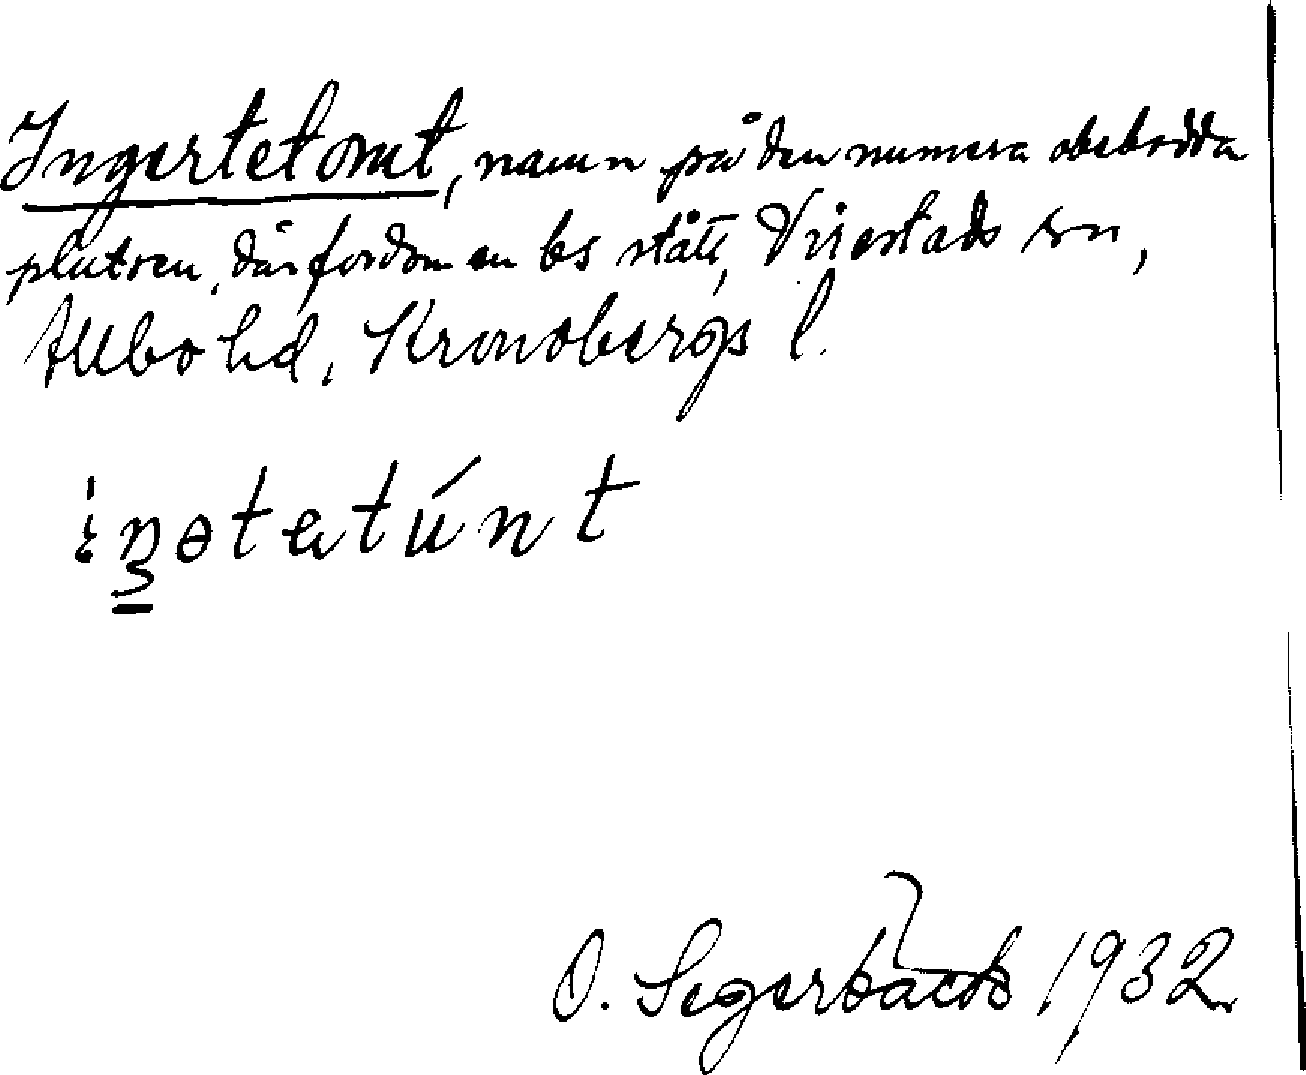 Ingertetomt, namn på den numera obebodda
platsen, där fordom en bs stått, Vrigstads sn,
Allbo hd, Kronobergs l.
O. Segerbäck 1932